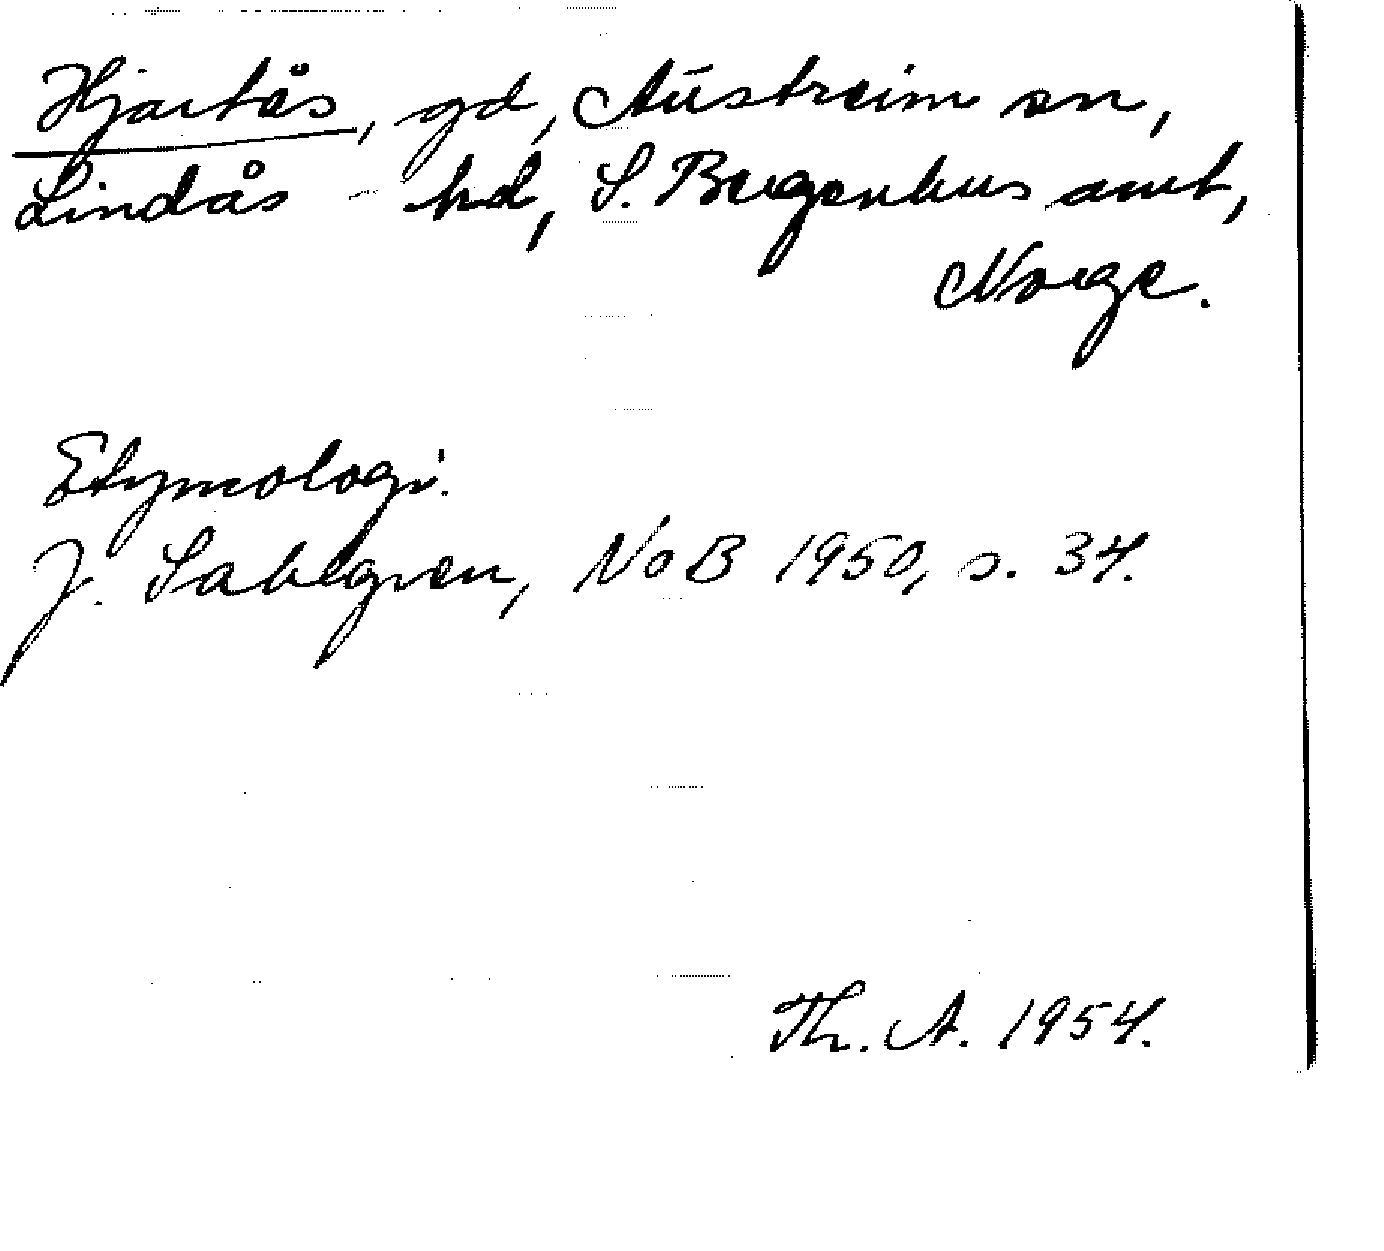 Hjartås, gd, Austreim sn,
Lindås - hd, S. Bergenhus amt,
Norge.
Etymologi.
J. Sahlgren, NoB 1950, s. 34.
Th. A. 1954.